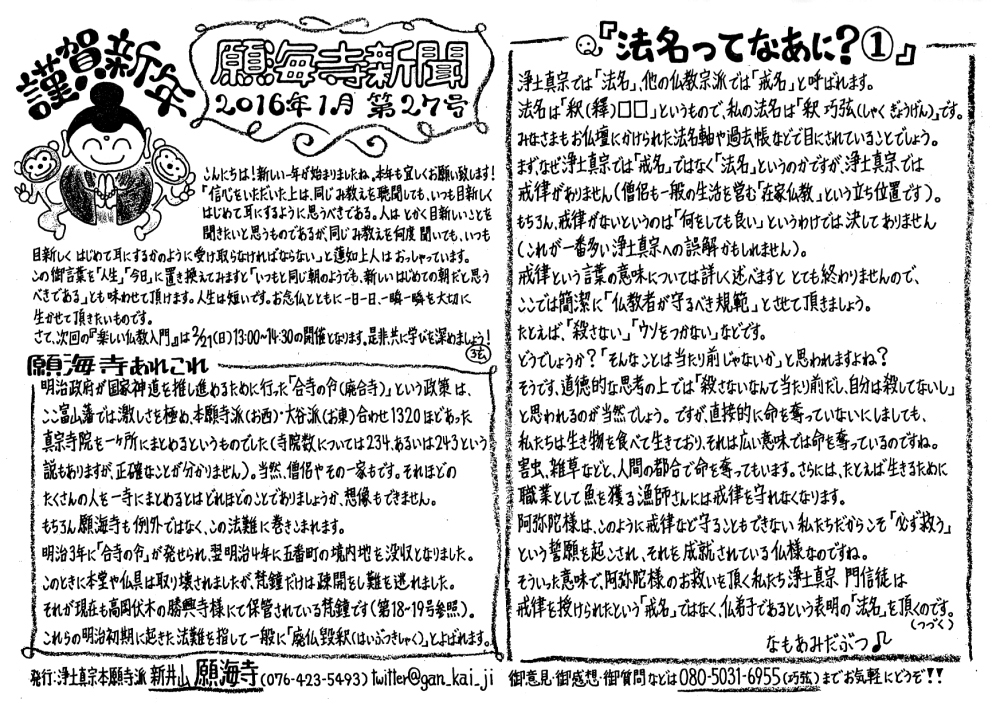 謹賀新年
願海寺新聞
2016年1月 第27号
こんにちは!新しい一年が始まりましたね。本年も宜しくお願い致します!
「信心をいただいた上は、同じみ教えを聴聞しても、いつも目新しく
はじめて耳にするように思うべきである。人はとかく目新しいことを
聞きたいと思うものであるが、同じみ教えを何度聞いても、いつも
目新しくはじめて耳にするかのように受け取らなければならない」と蓮如上人はおっしゃっています。
この御言葉を「人生」「今日」に置き換えてみますと「いつもと同じ朝のようでも、新しいはじめての朝だと思う
べきである」とも味わせて頂けます。人生は短いです。お念仏とともに一日一日、一瞬一瞬を大切に
生かせて頂きたいものです。
さて、次回の『楽しい仏教入門』は2/21(日)13:00~14:30の開催となります。是非共に学びを深めましょう!
弦
願海寺あれこれ
明治政府が国家神道を推し進めるために行った「合寺の令(廃合寺)」という政策は、
ここ富山藩では、激しさを極め、本願寺派(お西)・大谷派(お東)合わせ1320ほどあった
真宗寺院を一ヶ所にまとめるというものでした(寺院数については234、あるいは243という
説もありますが、正確なことが分かりません)。当然、僧侶やその一家もです。それほどの
たくさんの人を一寺にまとめるとはどれほどのことでありましょうか、想像もできません。
もちろん願海寺も例外ではなく、この法難に巻きこまれます。
明治3年に「合寺の令」が発せられ、翌明治4年に五番町の境内地を没収となりました。
このときに本堂や仏具は取り壊されましたが、梵鐘だけは疎開をし難を逃れました。
それが現在も高岡伏木の勝興寺様にて保管されている梵鐘です(第18~19号参照)。
これらの明治初期に起きた法難を指して一般に「廃仏毀釈(はいぶつきしゃく)」とよばれます。
発行:浄土真宗本願寺派 新井山 願海寺(076-423-5493) twitter@gan_kai_ji
『法名ってなあに?①』
浄土真宗では「法名」、他の仏教宗派では「戒名」と呼ばれます。
法名は「釈(釋)□□」というもので、私の法名は「釈 巧弦(しゃく ぎょうげん)」です。
みなさまもお仏壇にかけられた法名軸や過去帳などで目にされていることでしょう。
まず、なぜ浄土真宗では「戒名」ではなく「法名」というのかですが、浄土真宗では
戒律がありません(僧侶も一般の生活を営む「在家仏教」という立ち位置です)。
もちろん、戒律がないというのは「何をしても良い」というわけでは決してありません
(これが一番多い浄土真宗への誤解かもしれません)。
戒律という言葉の意味については詳しく述べますととても終わりませんので、
ここでは簡潔に「仏教者が守るべき規範」とさせて頂きましょう。
たとえば、「殺さない」「ウソをつかない」などです。
どうでしょうか?「そんなことは当たり前じゃないか」と思われますよね?
そうです、道徳的な思考の上では「殺さないなんて当たり前だし、自分は殺してないし」
と思われるのが当然でしょう。ですが、直接的に命を奪っていないにしましても、
私たちは生き物を食べて生きており、それは広い意味では命を奪っているのですね。
害虫、雑草などと、人間の都合で命を奪ってもいます。さらには、たとえば生きるために
職業として魚を獲る漁師さんには戒律を守れなくなります。
阿弥陀様は、このように戒律など守ることもできない私たちだからこそ「必ず救う」
という誓願を起こされ、それを成就されている仏様なのですね。
そういった意味で、阿弥陀様のお救いを頂く私たち浄土真宗 門信徒は
戒律を授けられたという「戒名」ではなく、仏弟子であるという表明の「法名」を頂くのです。
(つづく)
なもあみだぶつ♪
御意見・御感想・御質問などは080-5031-6955(巧弦)までお気軽にどうぞ!!